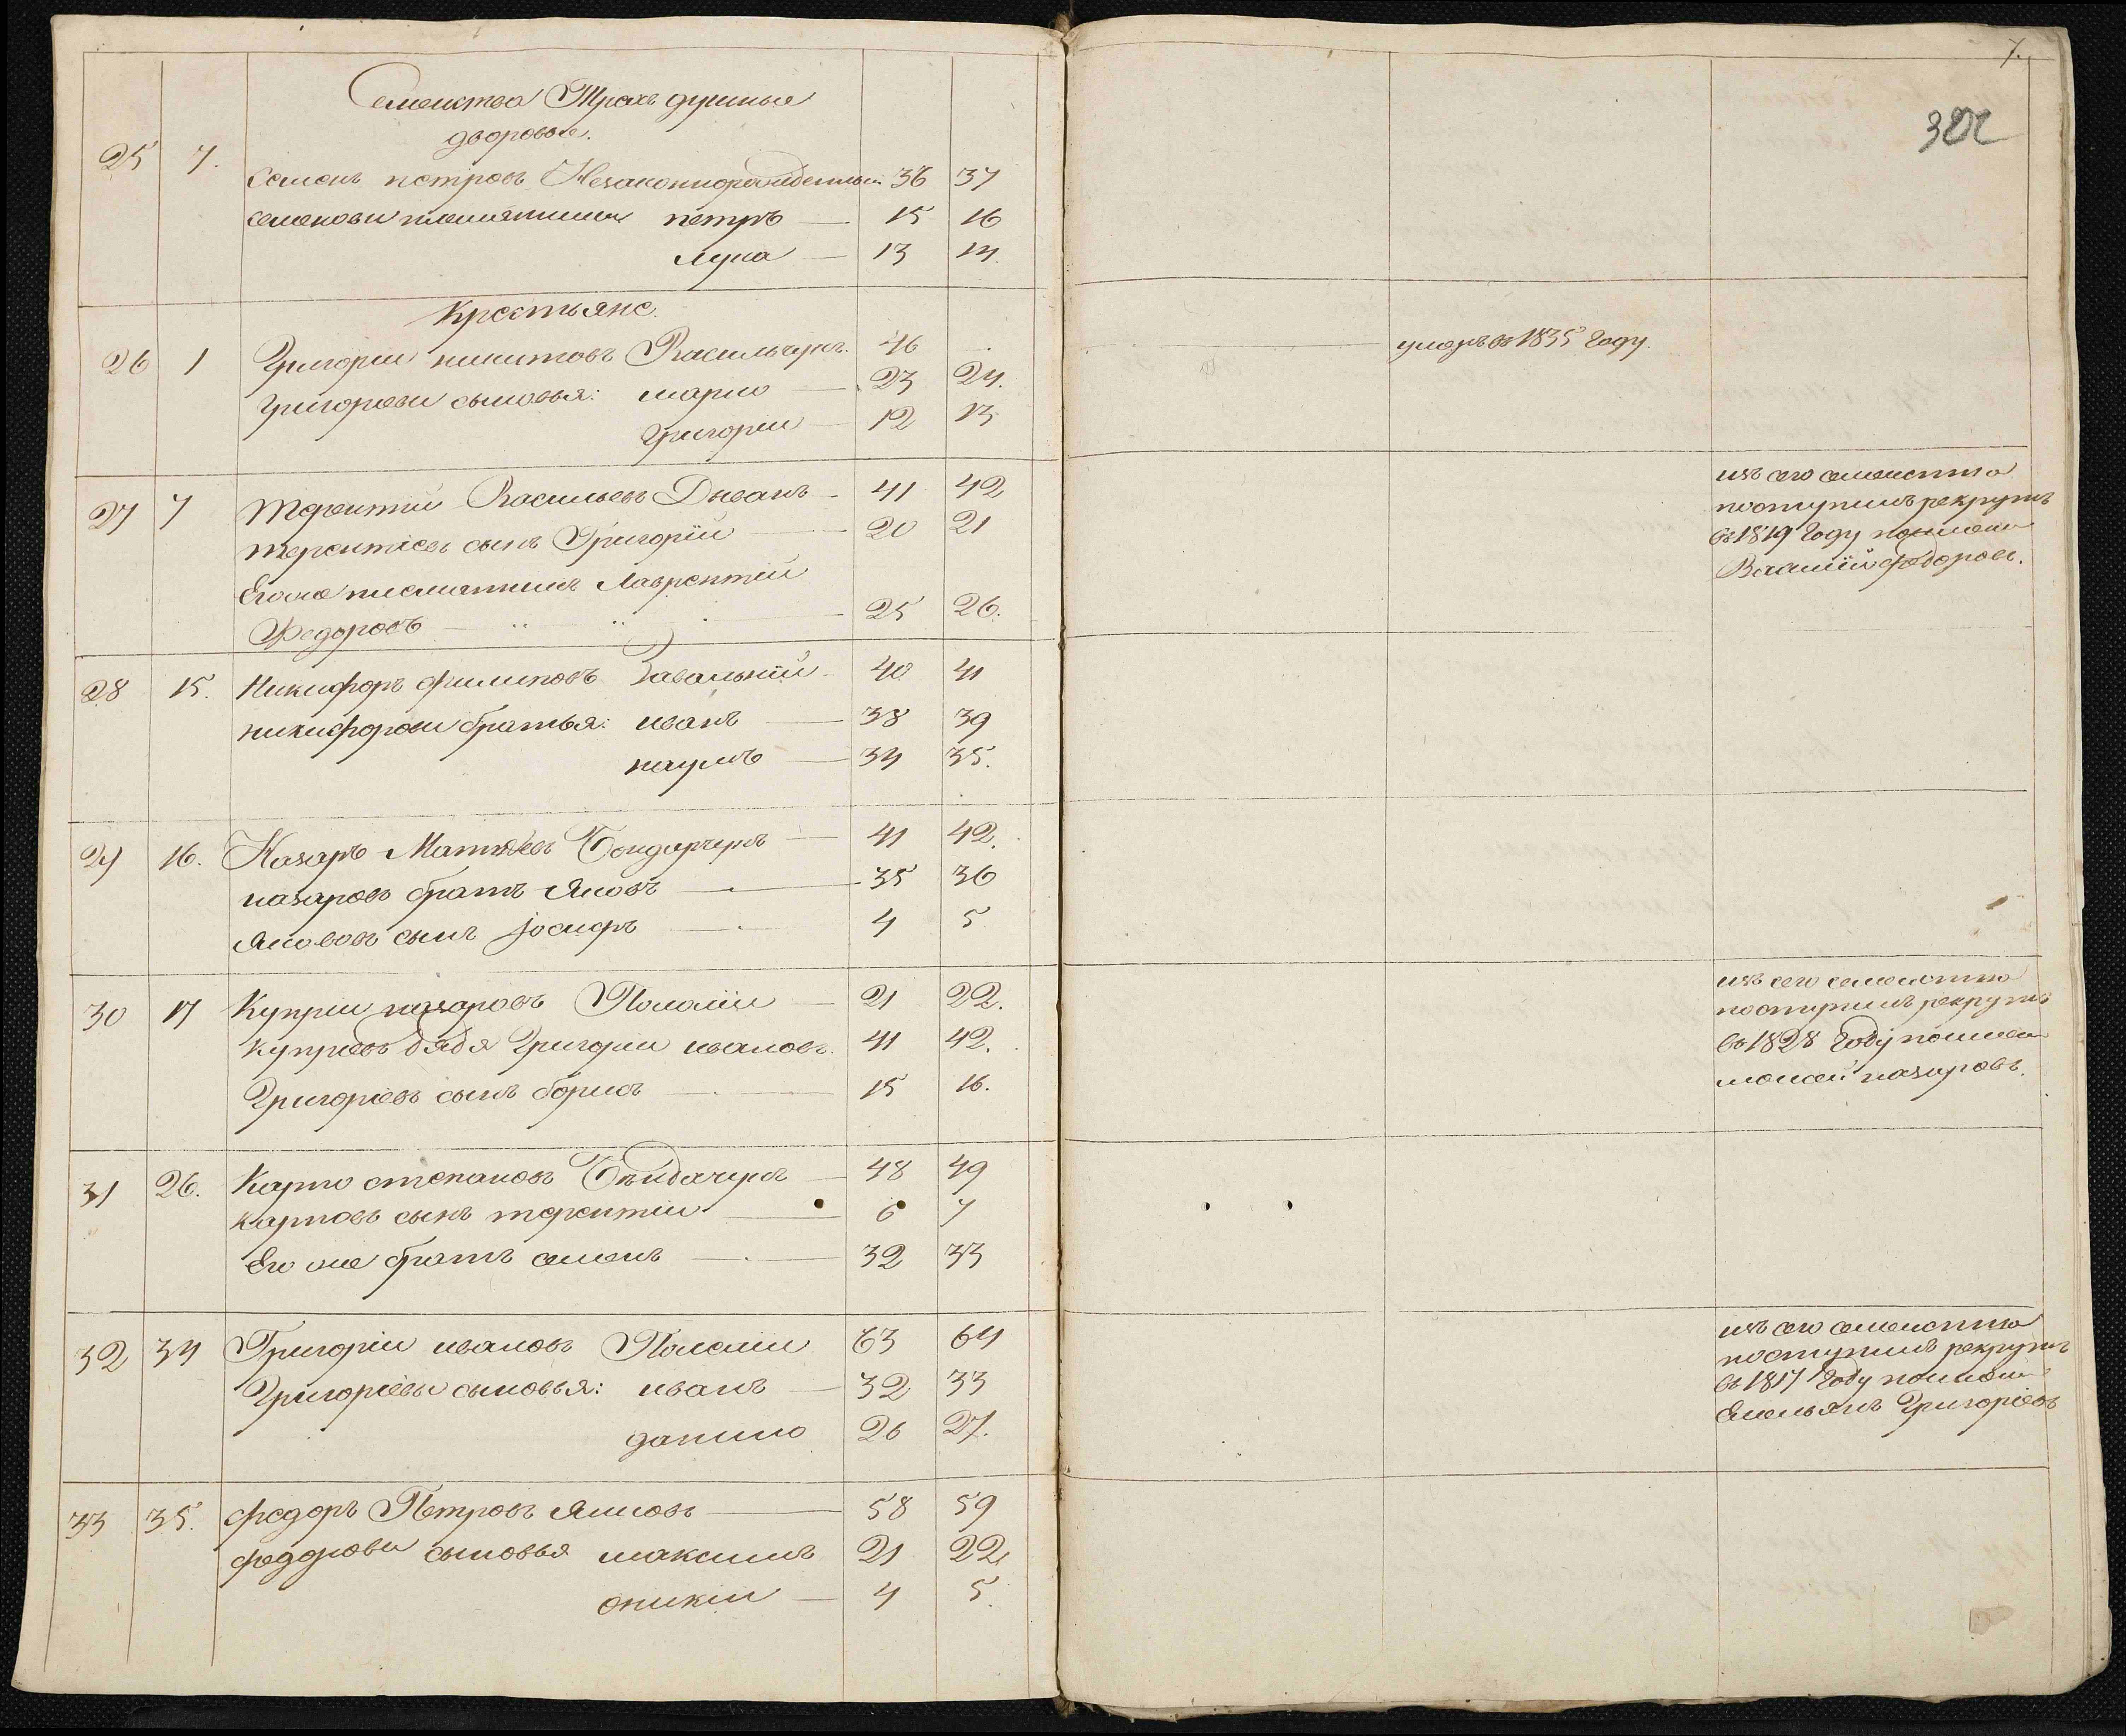 Семейства Трехъ душные
дворовые.
25 7. Семенъ петровъ Незаконнорожденный 36 37
семеновы племянники петръ 15 16
лука 13 14.
Крестьяне.
26 1 Григории никитовъ Васильчукъ 46 умеръ въ 1835 Году.
Григорьевы сыновья: марко 23 24.
Григории 12 13
27 7 Терентий Васильевъ 41 42
терентиевъ сынъ Григорій 20 21
Его же племянникъ Лаврентий
Федоровъ 25 26.
изъ сего семейства
поступилъ рекрутъ
въ 1819 Году
Василій федоровъ.
28 15. Никифоръ филиповъ Завальний 40 41
никифоровы братья: иванъ 38 39
наумъ 34 35.
29 16. Назаръ Матвѣевъ Бондарчукъ 41 42.
назаровъ братъ Яковъ 35 36
Яковovъ сынъ Іосифъ 4 5
30 17 Куприи назаровъ 21 22.
Куприевъ дядя Григории ивановъ. 41 42.
Григориевъ сынъ борисъ 15 16.
изъ сего семейства
поступилъ рекрутъ
въ 1828 Году
моисей назаровъ.
31 26. Карпо степановъ 48 49
карповъ сынъ терентии 6 7
Его же братъ семенъ 32 33
32 34 Григоріи ивановъ 63 64
Григоріевы сыновья: иванъ 32 33
данило 26 27.
изъ сего семейства
поступилъ рекрутъ
въ 1817 Году
Емельянъ Григоріевъ
33 35. федоръ Петровъ Яцковъ 58 59
федоровы сыновья максимъ 21 22
оникии 4 5.
7.
322